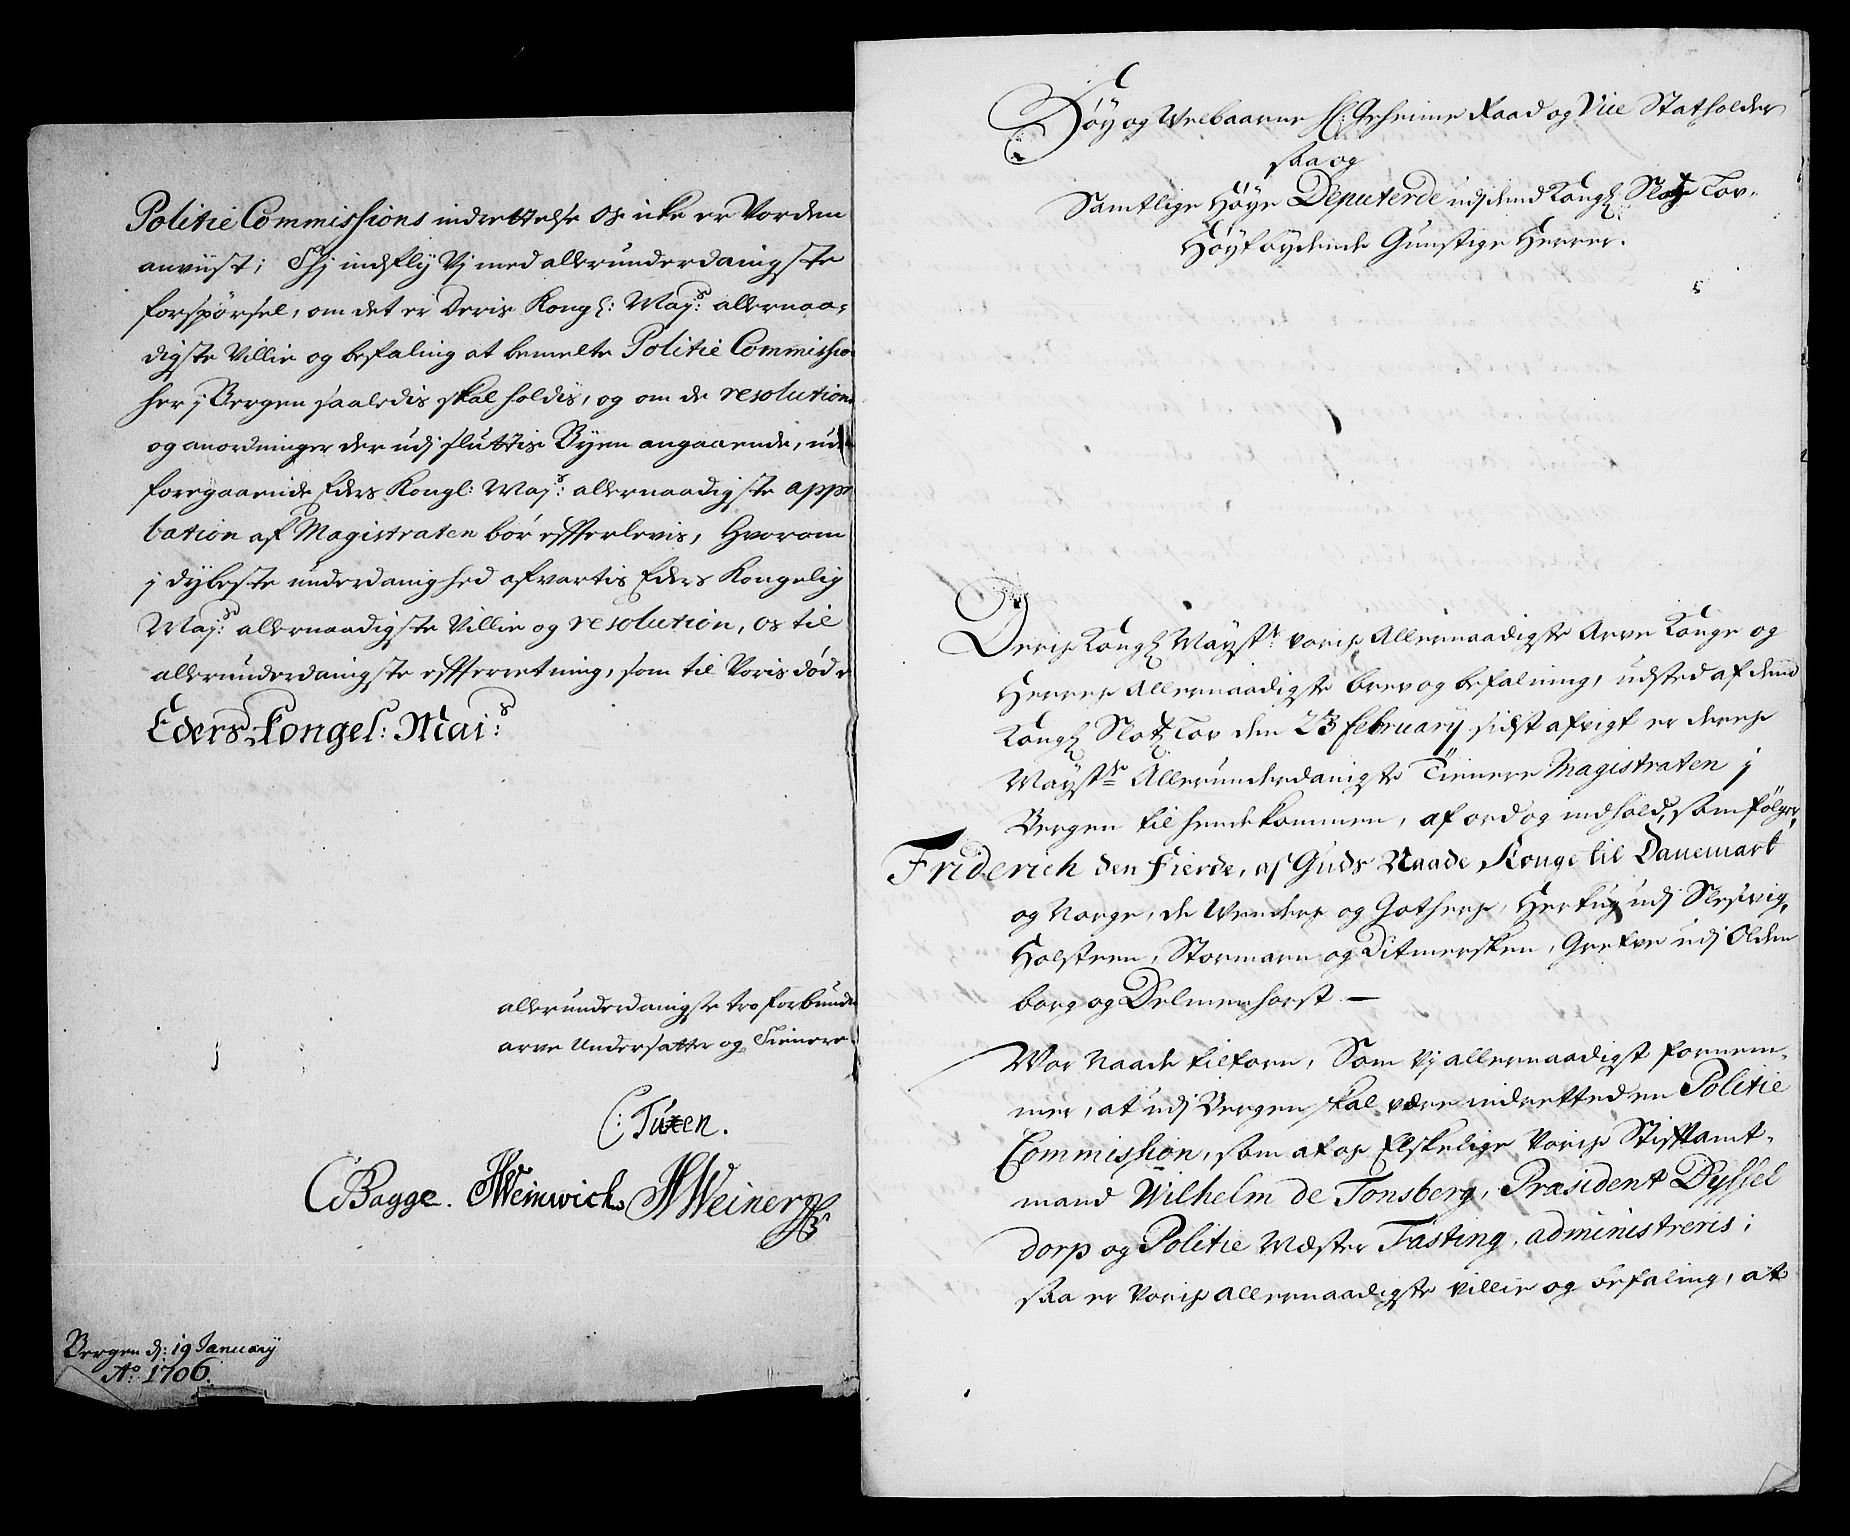 Politie Commissions indrettelse os icke er Vorden
anviist; Thj indfly Vj med allerunderdanigste
forspörsel, om det er Deris Kongl: Maj:s allernaa-
digste Villie og befaling at bemelte Politie Commission
her j Bergen saaledis skal holdis, og om de resolutions
og anordninger der udj sluttis Byen angaaende, uden
foregaaende Eders Kongl: Maj:s allernaadigste appro
bation af Magistraten bör effterlevis, Hvorom
j dybeste underdanighed afvartis Eders Kongelig
Maj:s allernaadigste Villie og resolution, os til
allerunderdanigste effterretning, som til Voris död er
Eders Kongel: Mai:s
allerunderdanigste tro forbundne
arve Undersatter og Tienere.
C: Tuxen.
CBagge. HWeinwich HWeiner
Bergen d: 19 January
Ao 1706.
Höy og Welbaarne H: Geheime Raad og Vice Statholder
saa og
Samtlige Höye Deputerde udj dend Kongl Slotz Lov.
Höybydende Gunstige Herrer.
Deris Kongl Mayst:s voris Allernaadigste Arve Konge og
Herres Allernaadigste brev og befalning, udsted af dend
Kongl Slotz Lov den 23 february sidst afvigt er deres
Mayst:ts Allerunderdanigste Tienere Magistraten j
Bergen tilhendekommen, af ord og indhold, som fölger,
Friderich den Fierde, af Guds Naade Konge til Danemark
og Norge, de Wenders og Gothers, Hertug udj Slesvig,
Holsteen, Stormarn og Ditmersken, Grefve udj Olden
borg og Delmenhorst —
Wor Naade tilforn, Som Vj allernaadigst fornem-
mer, at udj Bergen skal være indretted en Politie
Commission, som af os Elskelige Voris Stifftamt-
mand Wilhelm de Tonsberg, Præsident Dyssel
dorp og Politie Mester Fasting, administreris;
saa er Voris allernaadigste villie og befaling, at